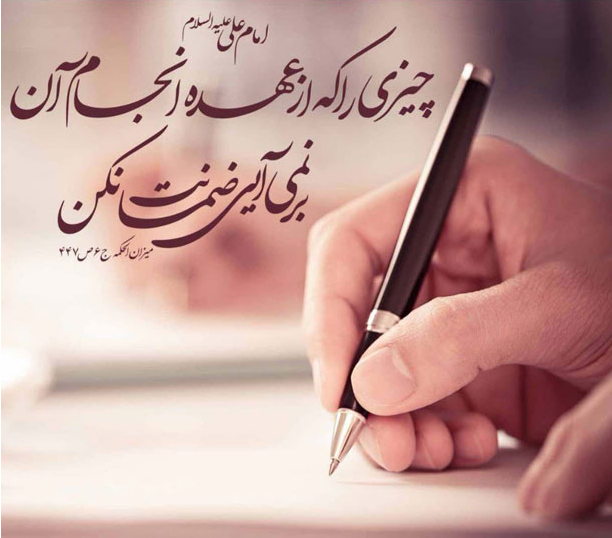 امام علی علیه السلام
چیزی را که از عهده انجام آن
بر نمی آیی ضمانت نکن
میزان الحکمه ج ۶ ص ۴۴۷